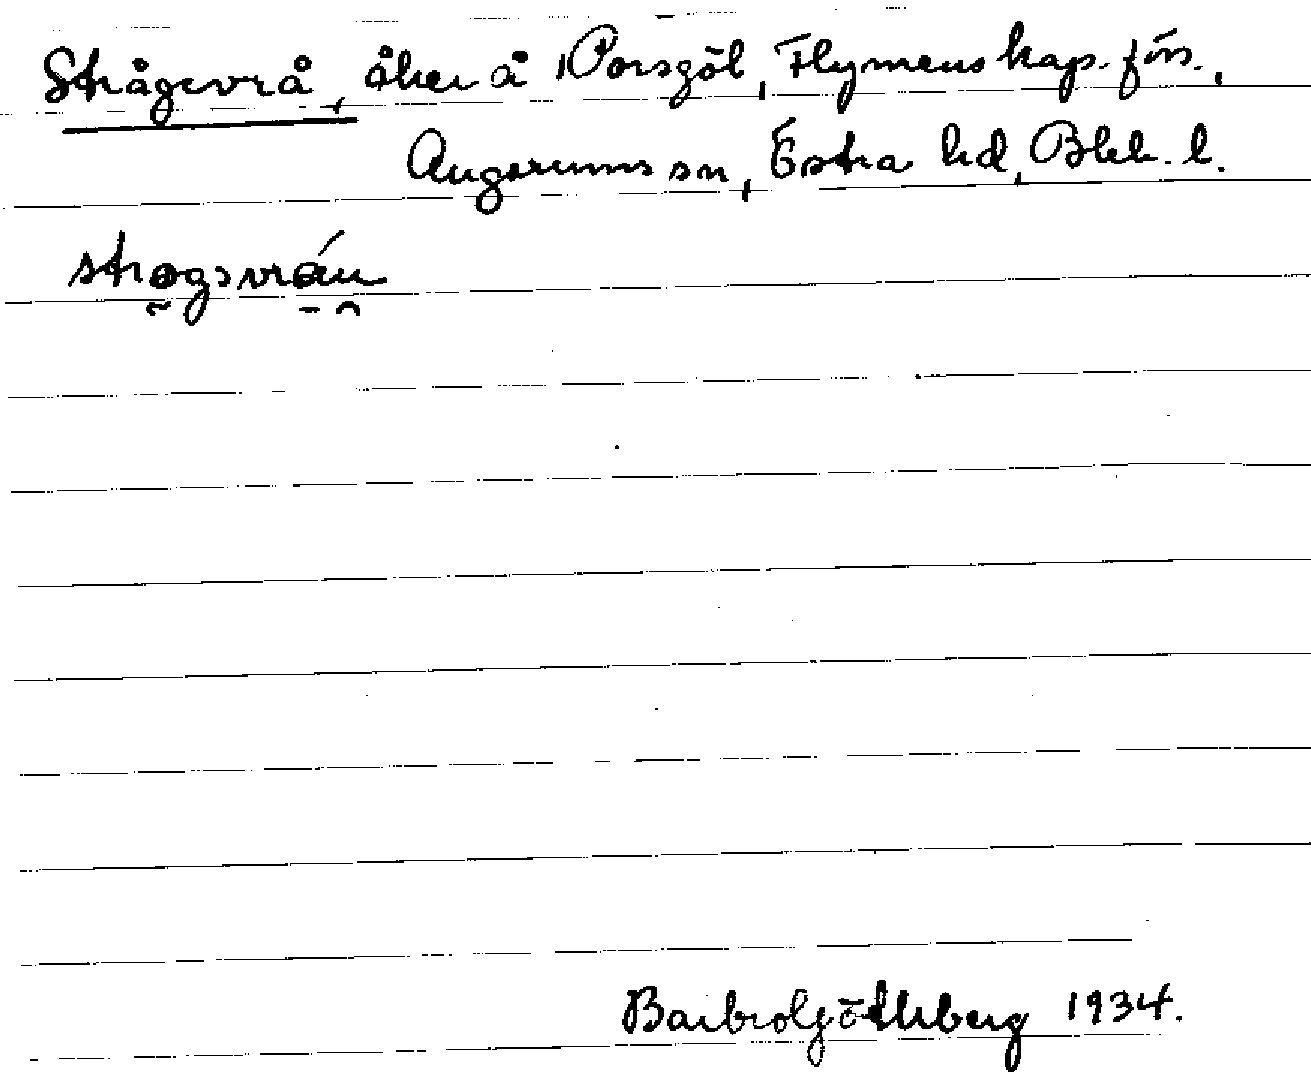 Strågevrå, åker å Porsgöl, Flymens kap. förs.,
Augerums sn, Östra hd, Blek. l.
strogsvrån
Barbro Göthberg 1934.